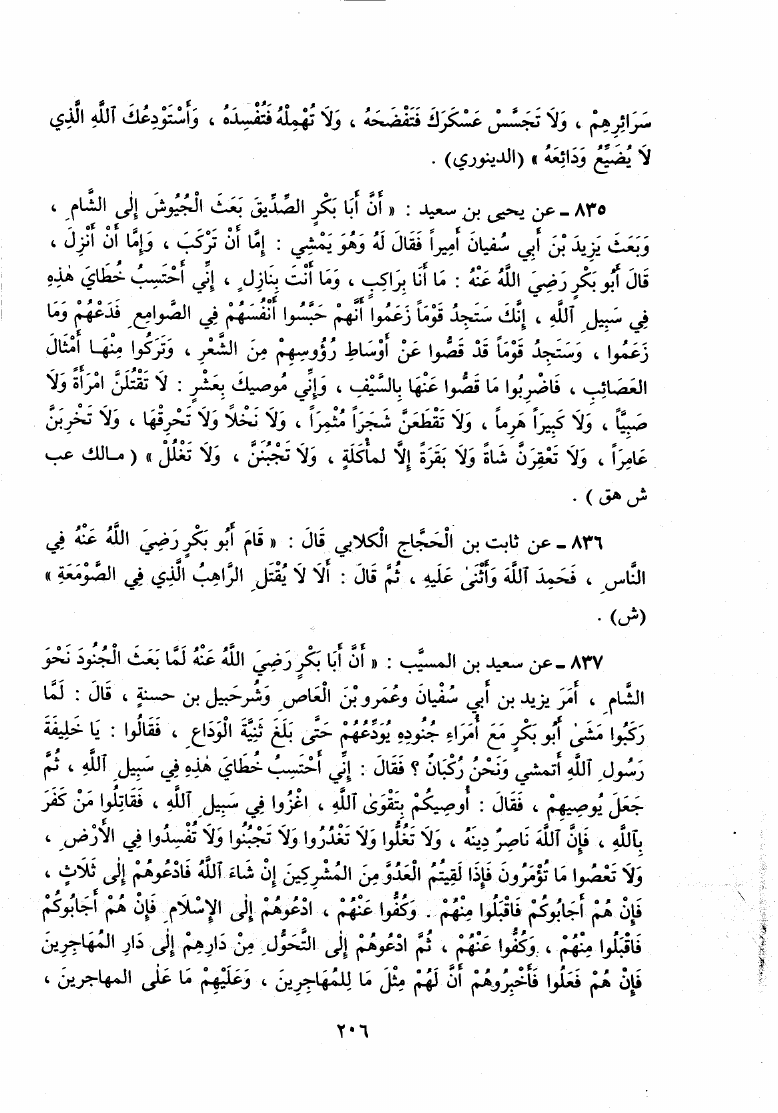 سَرَائِرِهِمْ ، وَلَا تَجَسَّسْ عَسْكَرَكَ فَتَفْضَحَهُ ، وَلَا تُهْمِلْهُ فَتُفْسِدَهُ ، وَأَسْتَوْدِعُكَ اللَّهَ الَّذِي
لَا يُضَيِّعُ وَدَائِعَهُ » (الدينوري) .
٨٣٥ - عن يحيى بن سعيد : « أَنَّ أَبَا بَكْرٍ الصِّدِّيقَ بَعَثَ الْجُيُوشَ إِلَى الشَّامِ ،
وَبَعَثَ يَزِيدَ بْنَ أَبِي سُفْيَانَ أَمِيراً فَقَالَ لَهُ وَهُوَ يَمْشِي : إِمَّا أَنْ تَرْكَبَ ، وَإِمَّا أَنْ أَنْزِلَ ،
قَالَ أَبُو بَكْرٍ رَضِيَ اللَّهُ عَنْهُ : مَا أَنَا بِرَاكِبٍ ، وَمَا أَنْتَ بِنَازِلٍ ، إِنِّي أَحْتَسِبُ خُطَايَ هٰذِهِ
فِي سَبِيلِ اللَّهِ ، إِنَّكَ سَتَجِدُ قَوْماً زَعَمُوا أَنَّهمْ حَبَّسُوا أَنْفُسَهُمْ فِي الصَّوامِعِ فَدَعْهُمْ وَمَا
زَعَمُوا ، وَسَتَجِدُ قَوْماً قَدْ فَصُوا عَنْ أَوْسَاطِ رُؤُوسِهِمْ مِنَ الشَّعْرِ ، وَتَرَكُوا مِنْهَا أَمْثَالَ
العَصَائِبِ ، فَاضْرِبُوا مَا فَصُّوا عَنْهَا بِالسَّيْفِ ، وَإِنِّي مُوصِيكَ بِعَشْرٍ : لَا تَقْتُلَنَّ امْرَأَةً وَلَا
صَبِيًّا ، وَلَا كَبِيراً هَرِماً ، وَلَا تَقْطَعَنَّ شَجَراً مُثْمِراً ، وَلَا نَخْلًا وَلَا تَحْرِقْهَا ، وَلَا تَخْرِبَنَّ
عَامِراً ، وَلَا تَعْقِرَنَّ شَاةً وَلَا بَقَرَةً إِلَّا لمأْكَلَةٍ ، وَلَا تَجْبُنَنَّ ، وَلَا تَغْلُلْ » ( مالك عب
ش هق ) .
٨٣٦ - عن ثابت بن الْحَجَّاجِ الْكلابي قَالَ : « قَامَ أَبُو بَكْرٍ رَضِيَ اللَّهُ عَنْهُ فِي
النَّاسِ ، فَحَمِدَ اللَّهَ وَأَثْنَىٰ عَلَيهِ ، ثُمَّ قَالَ : أَلَا لَا يُقْتَلِ الرَّاهِبُ الَّذِي فِي الصَّوْمَعَةِ »
(ش) .
٨٣٧ - عن سعيد بن المسيَّب : « أَنَّ أَبَا بَكْرٍ رَضِيَ اللَّهُ عَنْهُ لَمَّا بَعَثَ الْجُنُودَ نَحْوَ
الشَّامِ ، أَمَرَ يزيد بن أَبي سُفْيَانَ وَعَمرو بْنَ الْعَاصِ وَشُرَحبيل بن حسنة ، قَالَ : لَمَّا
رَكَبُوا مَشَىٰ أَبُو بَكْرٍ مَعَ أُمَرَاءِ جُنُودِهِ يُوَدِّعُهُمْ حَتَّى بَلَغَ ثَنِيَّةَ الْوَدَاعِ ، فَقَالُوا : يَا خَلِيفَةَ
رَسُولِ اللَّهِ أتمشي وَنَحْنُ رُكْبَانٌ ؟ فَقَالَ : إِنِّي أَحْتَسِبُ خُطَايَ هٰذِهِ فِي سَبِيلِ اللَّهِ ، ثُمَّ
جَعَلَ يُوصِيهِمْ ، فَقَالَ : أُوصِيكُمْ بِتَقْوَى اللَّهِ ، اغْزُوا فِي سَبِيلِ اللَّهِ ، فَقَاتِلُوا مَنْ كَفَرَ
بِاللَّهِ ، فَإِنَّ اللَّهَ نَاصِرٌ دِينَهُ ، وَلَا تَغُلُّوا وَلَا تَغْدُرُوا وَلَا تَجْبُنُوا وَلَا تُفْسِدُوا فِي الْأَرْضِ ،
وَلَا تَعْصُوا مَا تُؤْمَرُونَ فَإِذَا لَقِيتُمُ الْعَدُوَّ مِنَ الْمُشْرِكِينَ إِنْ شَاءَ اللَّهُ فَادْعُوهُمْ إِلَى ثَلَاثٍ ،
فَإِنْ هُمْ أَجَابُوكُمْ فَاقْبَلُوا مِنْهُمْ . وَكُفُّوا عَنْهُمْ ، ادْعُوهُمْ إِلَى الإِسْلَامِ فَإِنْ هُمْ أَجَابُوكُمْ
فَاقْبَلُوا مِنْهُمْ ، وَكُفُّوا عَنْهُمْ ، ثُمَّ ادْعُوهُمْ إِلَى التَّحَوُّلِ مِنْ دَارِهِمْ إِلَى دَارِ المُهَاجِرِينَ
فَإِنْ هُمْ فَعَلُوا فَأَخْبِرُوهُمْ أَنَّ لَهُمْ مِثْلَ مَا لِلْمُهَاجِرِينَ ، وَعَلَيْهِمْ مَا عَلَى المهاجرين ،
٢٠٦